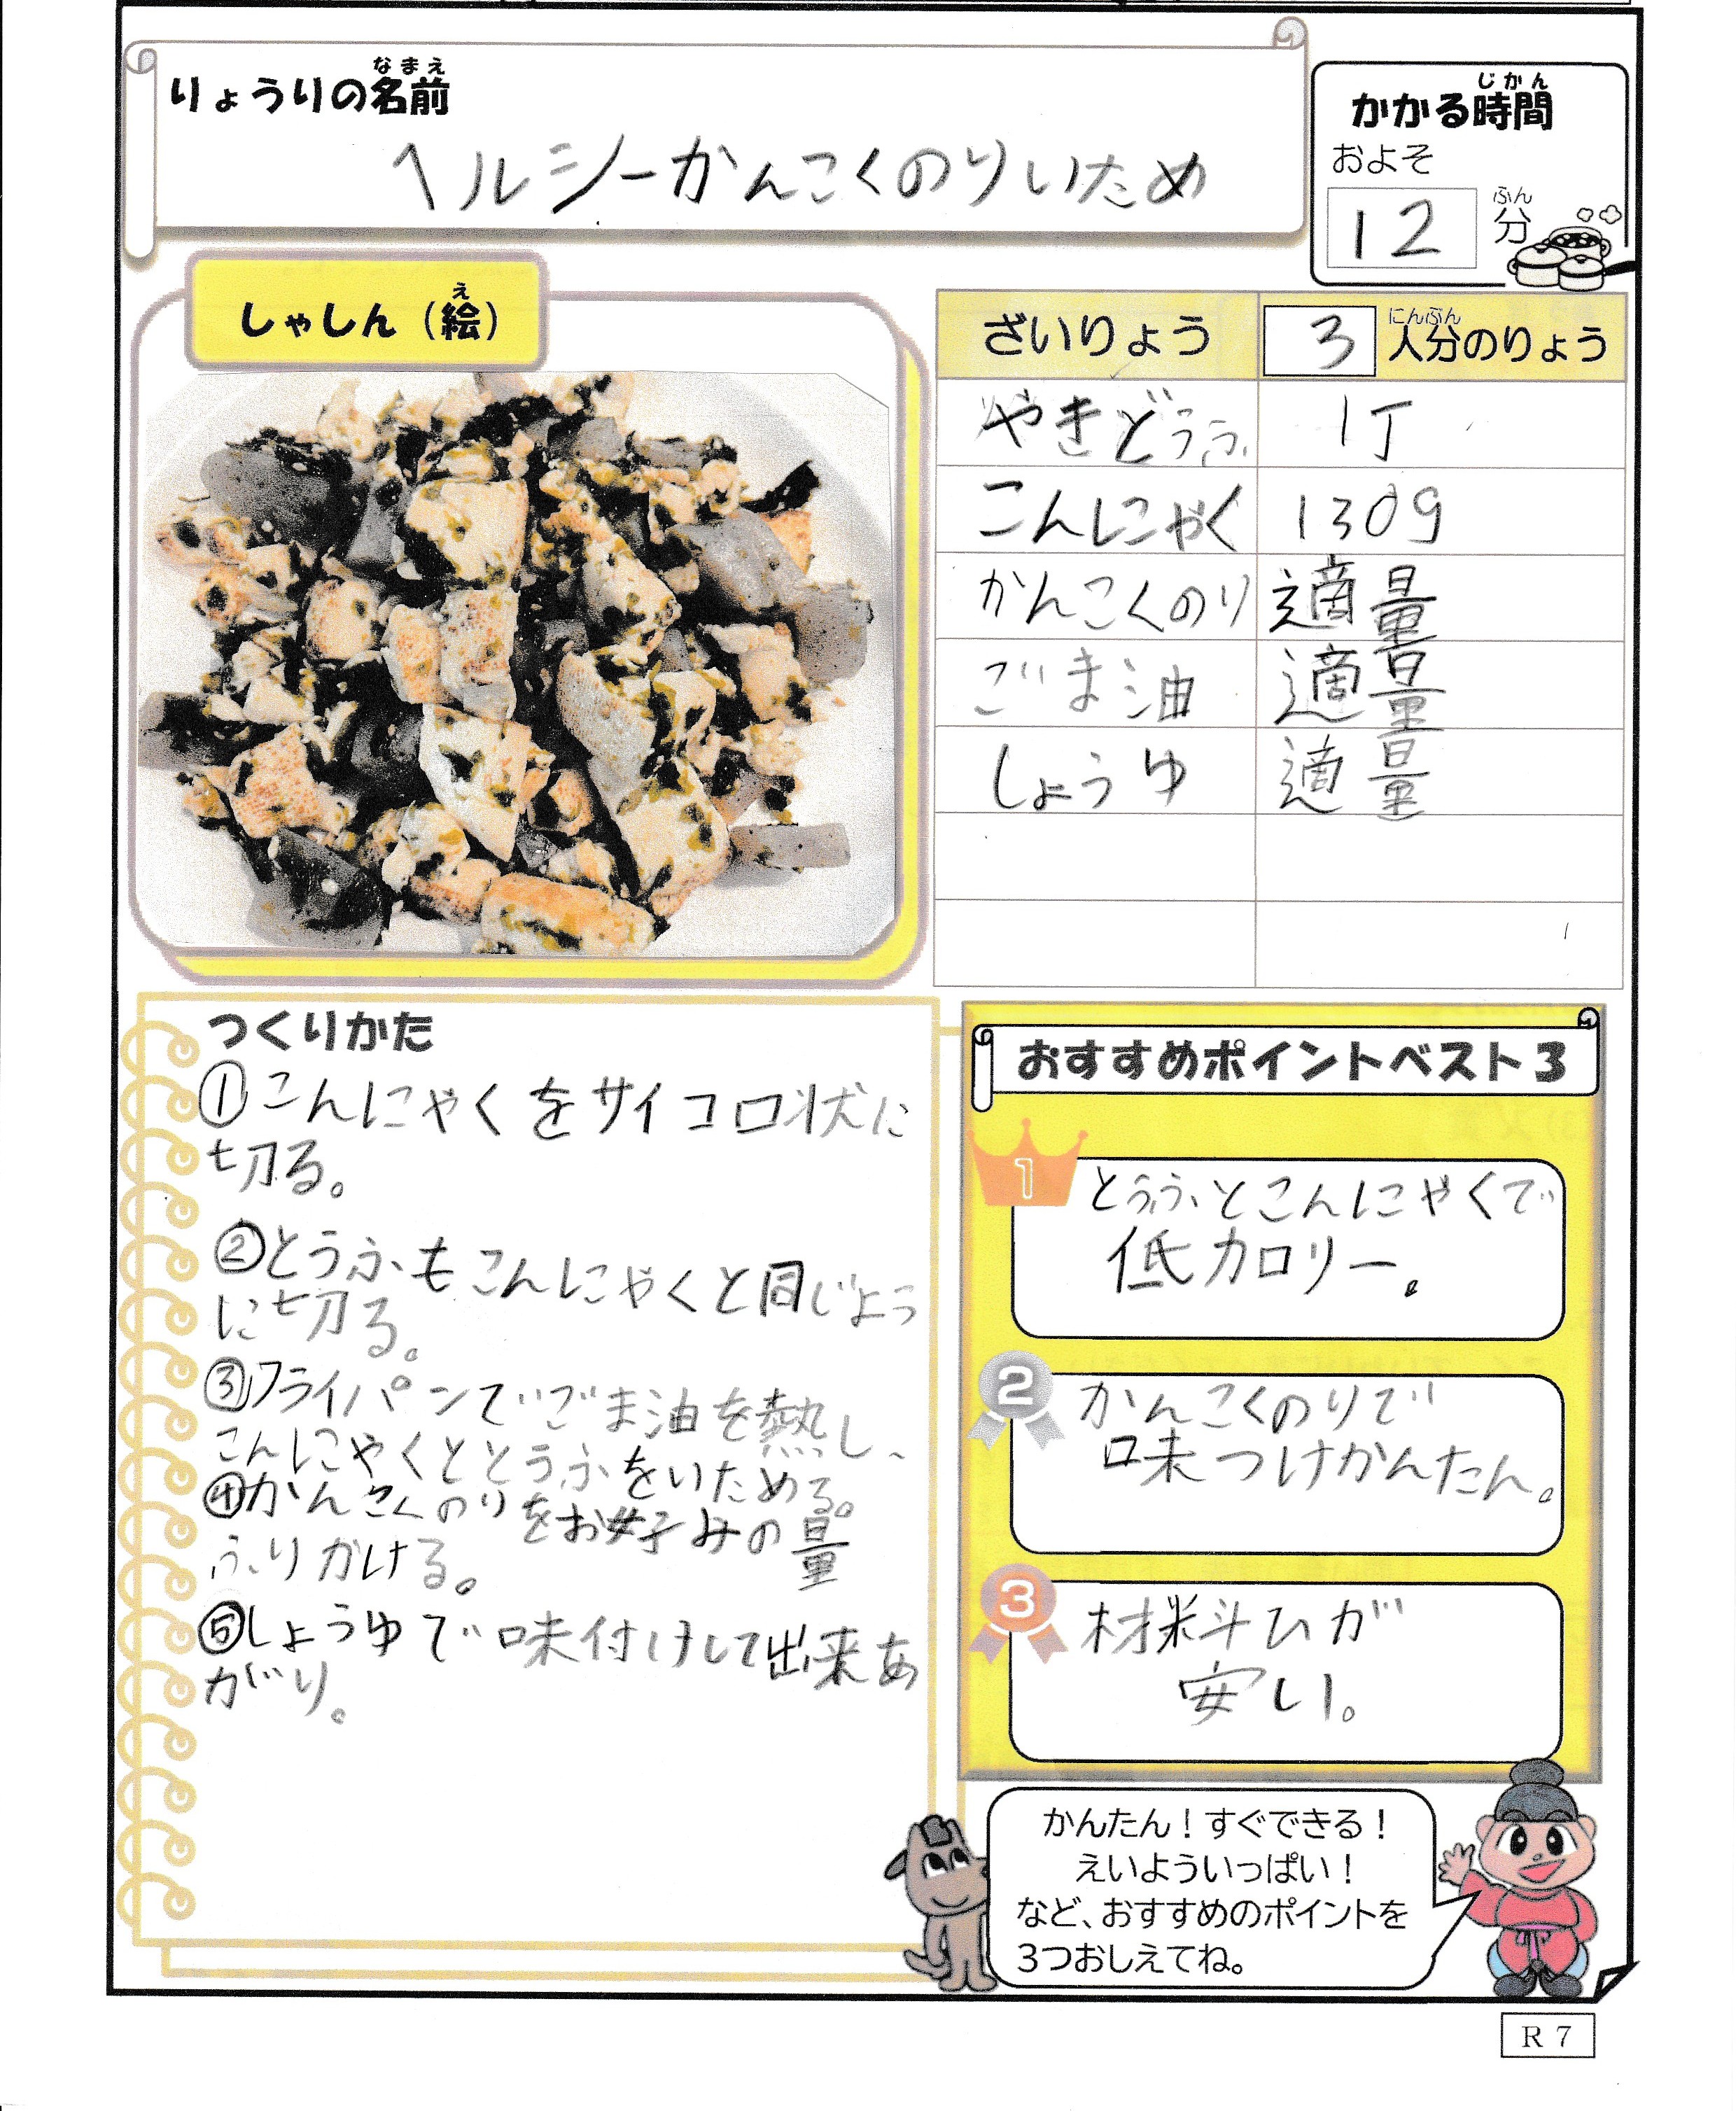 りょうりの名前
なまえ
ヘルシーかんこくのりいため
かかる時間
じかん
およそ
12分
ふん
しゃしん（絵）
え
ざいりょう 3人分のりょう
にんぶん
やきどうふ 1丁
こんにゃく 130g
かんこくのり 適量
ごま油 適量
しょうゆ 適量
つくりかた
①こんにゃくをサイコロ状に
切る。
②とうふもこんにゃくと同じよう
に切る。
③フライパンでごま油を熱し、
こんにゃくととうふをいためる。
④かんこくのりをお好みの量
ふりかける。
⑤しょうゆで味付けして出来あ
がり。
おすすめポイントベスト3
1
とうふとこんにゃくで
低カロリー。
2
かんこくのりで
味つけかんたん。
3
材料ひが
安い。
かんたん！すぐできる！
えいよういっぱい！
など、おすすめのポイントを
3つおしえてね。
R7